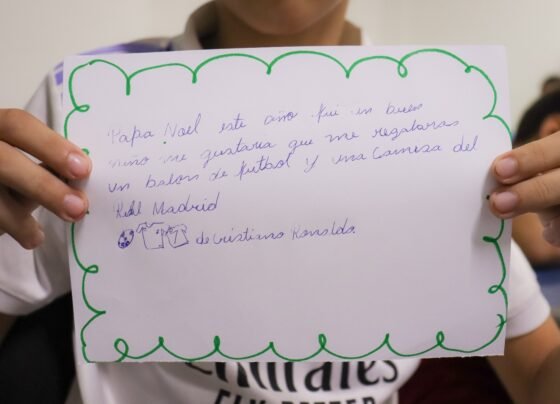 Papa Noel este año fui un buen
niño me gustaria que me regalaras
un balon de futbol y una Camisa del
Real Madrid
7 de Cristiano Ronaldo.
Emirates
FLY BETTER